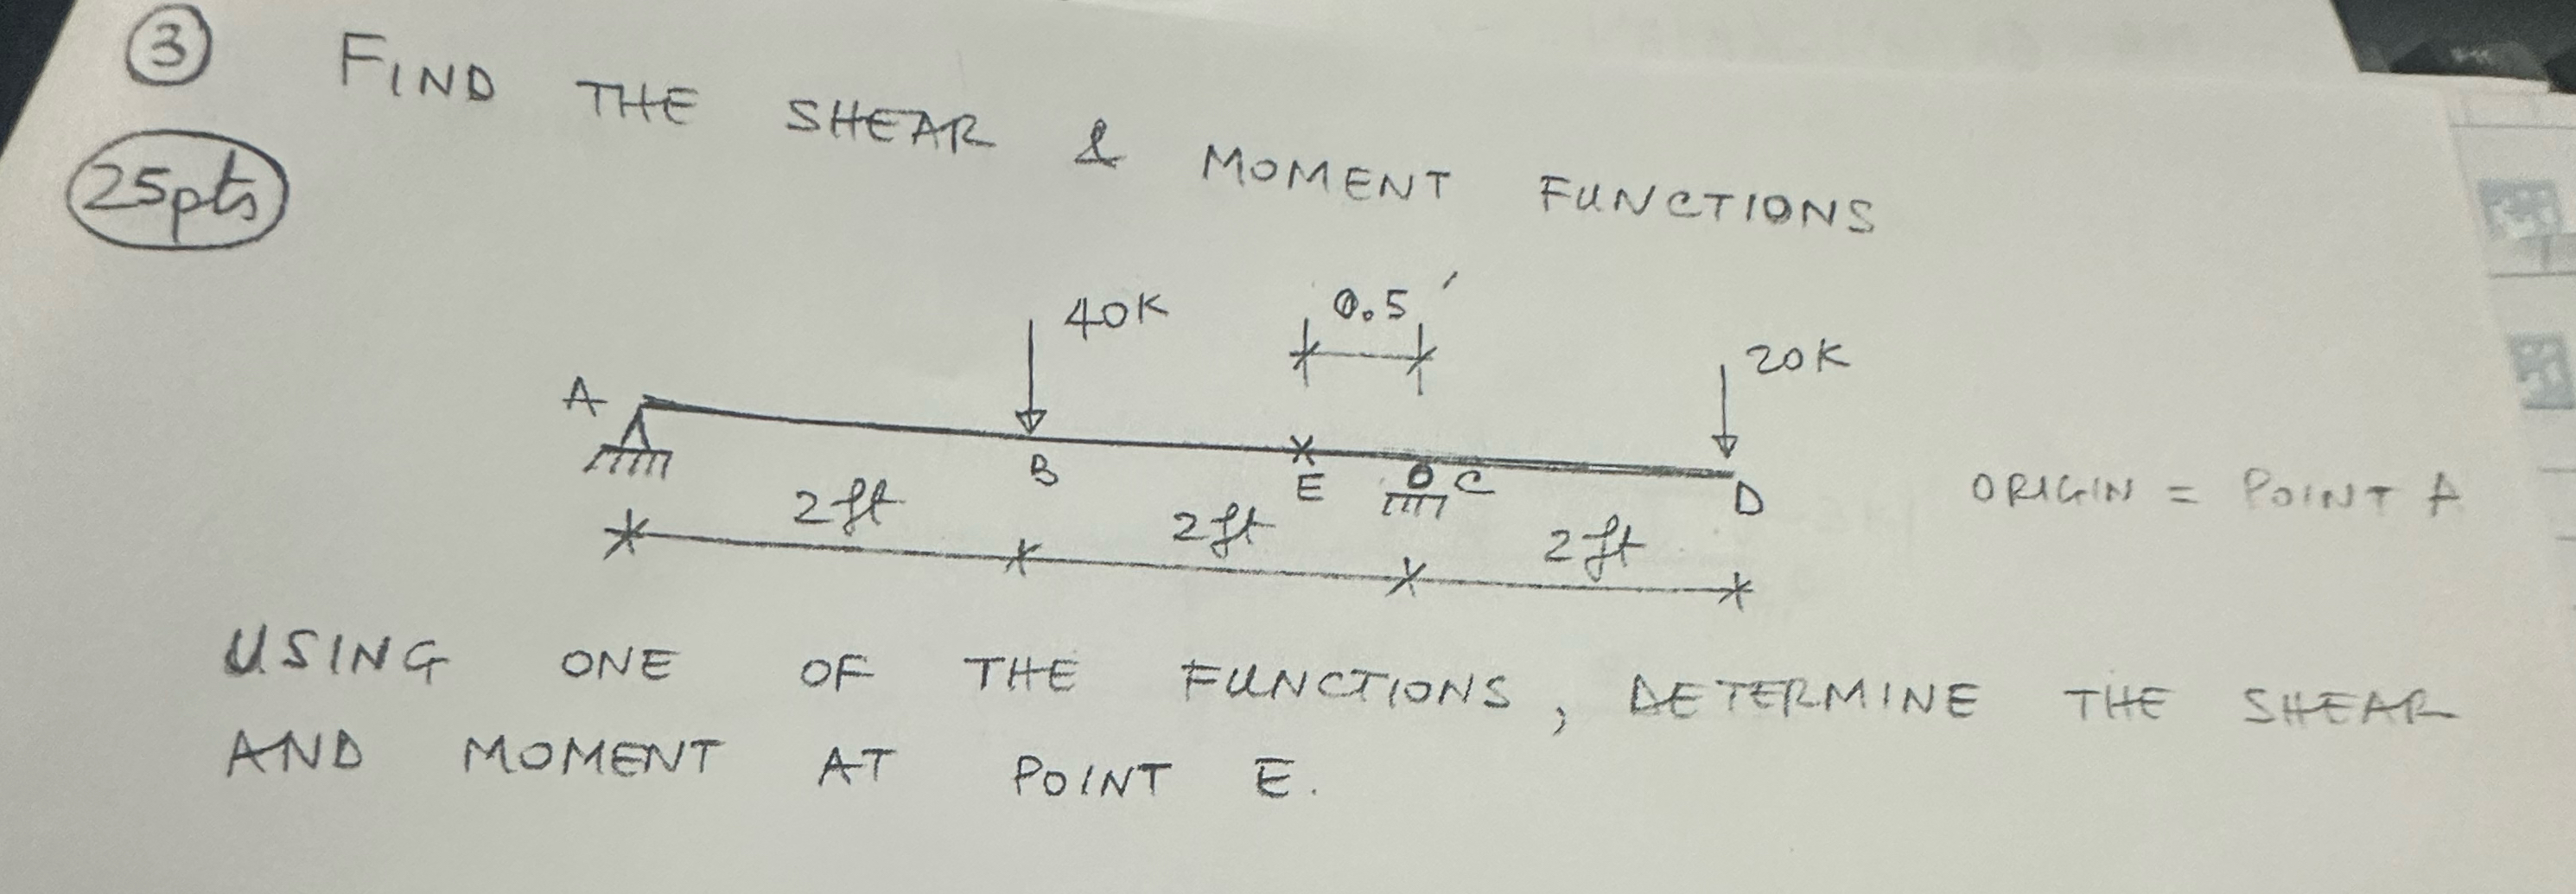 3 FIND THE SHEAR & MOMENT FUNCTIONS
25pts
40K
0.5'
20K
A
B
E
C
D
ORIGIN = POINT A
2ft
2ft
2ft
USING ONE OF THE FUNCTIONS, DETERMINE THE SHEAR
AND MOMENT AT POINT E.